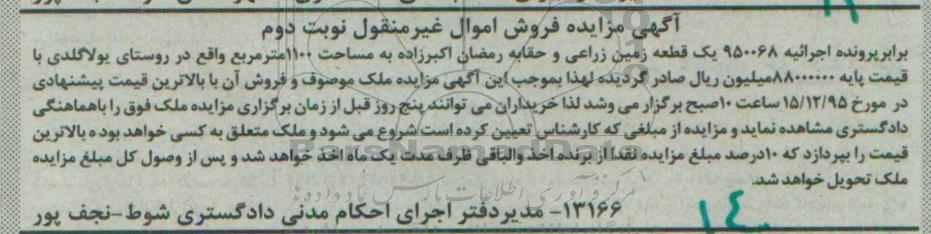 آگهی مزایده فروش اموال غیرمنقول نوبت دوم
برابر پرونده اجرائیه ۹۵۰۰۶۸ یک قطعه زمین زراعی و حقابه رمضان اکبرزاده به مساحت ۱۱۰۰مترمربع واقع در روستای یولاگلدی با
قیمت پایه ۸۸۰۰۰۰۰۰میلیون ریال صادر گردیده لهذا بموجب این آگهی مزایده ملک موصوف و فروش آن با بالاترین قیمت پیشنهادی
در مورخ ۱۵/۱۲/۹۵ ساعت ۱۰صبح برگزار می وشد لذا خریداران می توانند پنج روز قبل از زمان برگزاری مزایده ملک فوق را باهماهنگی
دادگستری مشاهده نماید و مزایده از مبلغی که کارشناس تعیین کرده است شروع می شود و ملک متعلق به کسی خواهد بود ه بالاترین
قیمت را بپردازد که ۱۰درصد مبلغ مزایده نقدا از برنده اخذ والباقی ظرف مدت یک ماه اخذ خواهد شد و پس از وصول کل مبلغ مزایده
ملک تحویل خواهد شد.
۱۳۱۶۶- مدیردفتر اجرای احکام مدنی دادگستری شوط-نجف پور
ParsNamadData
مرکز فرآوری اطلاعات پارس نماد داده ها